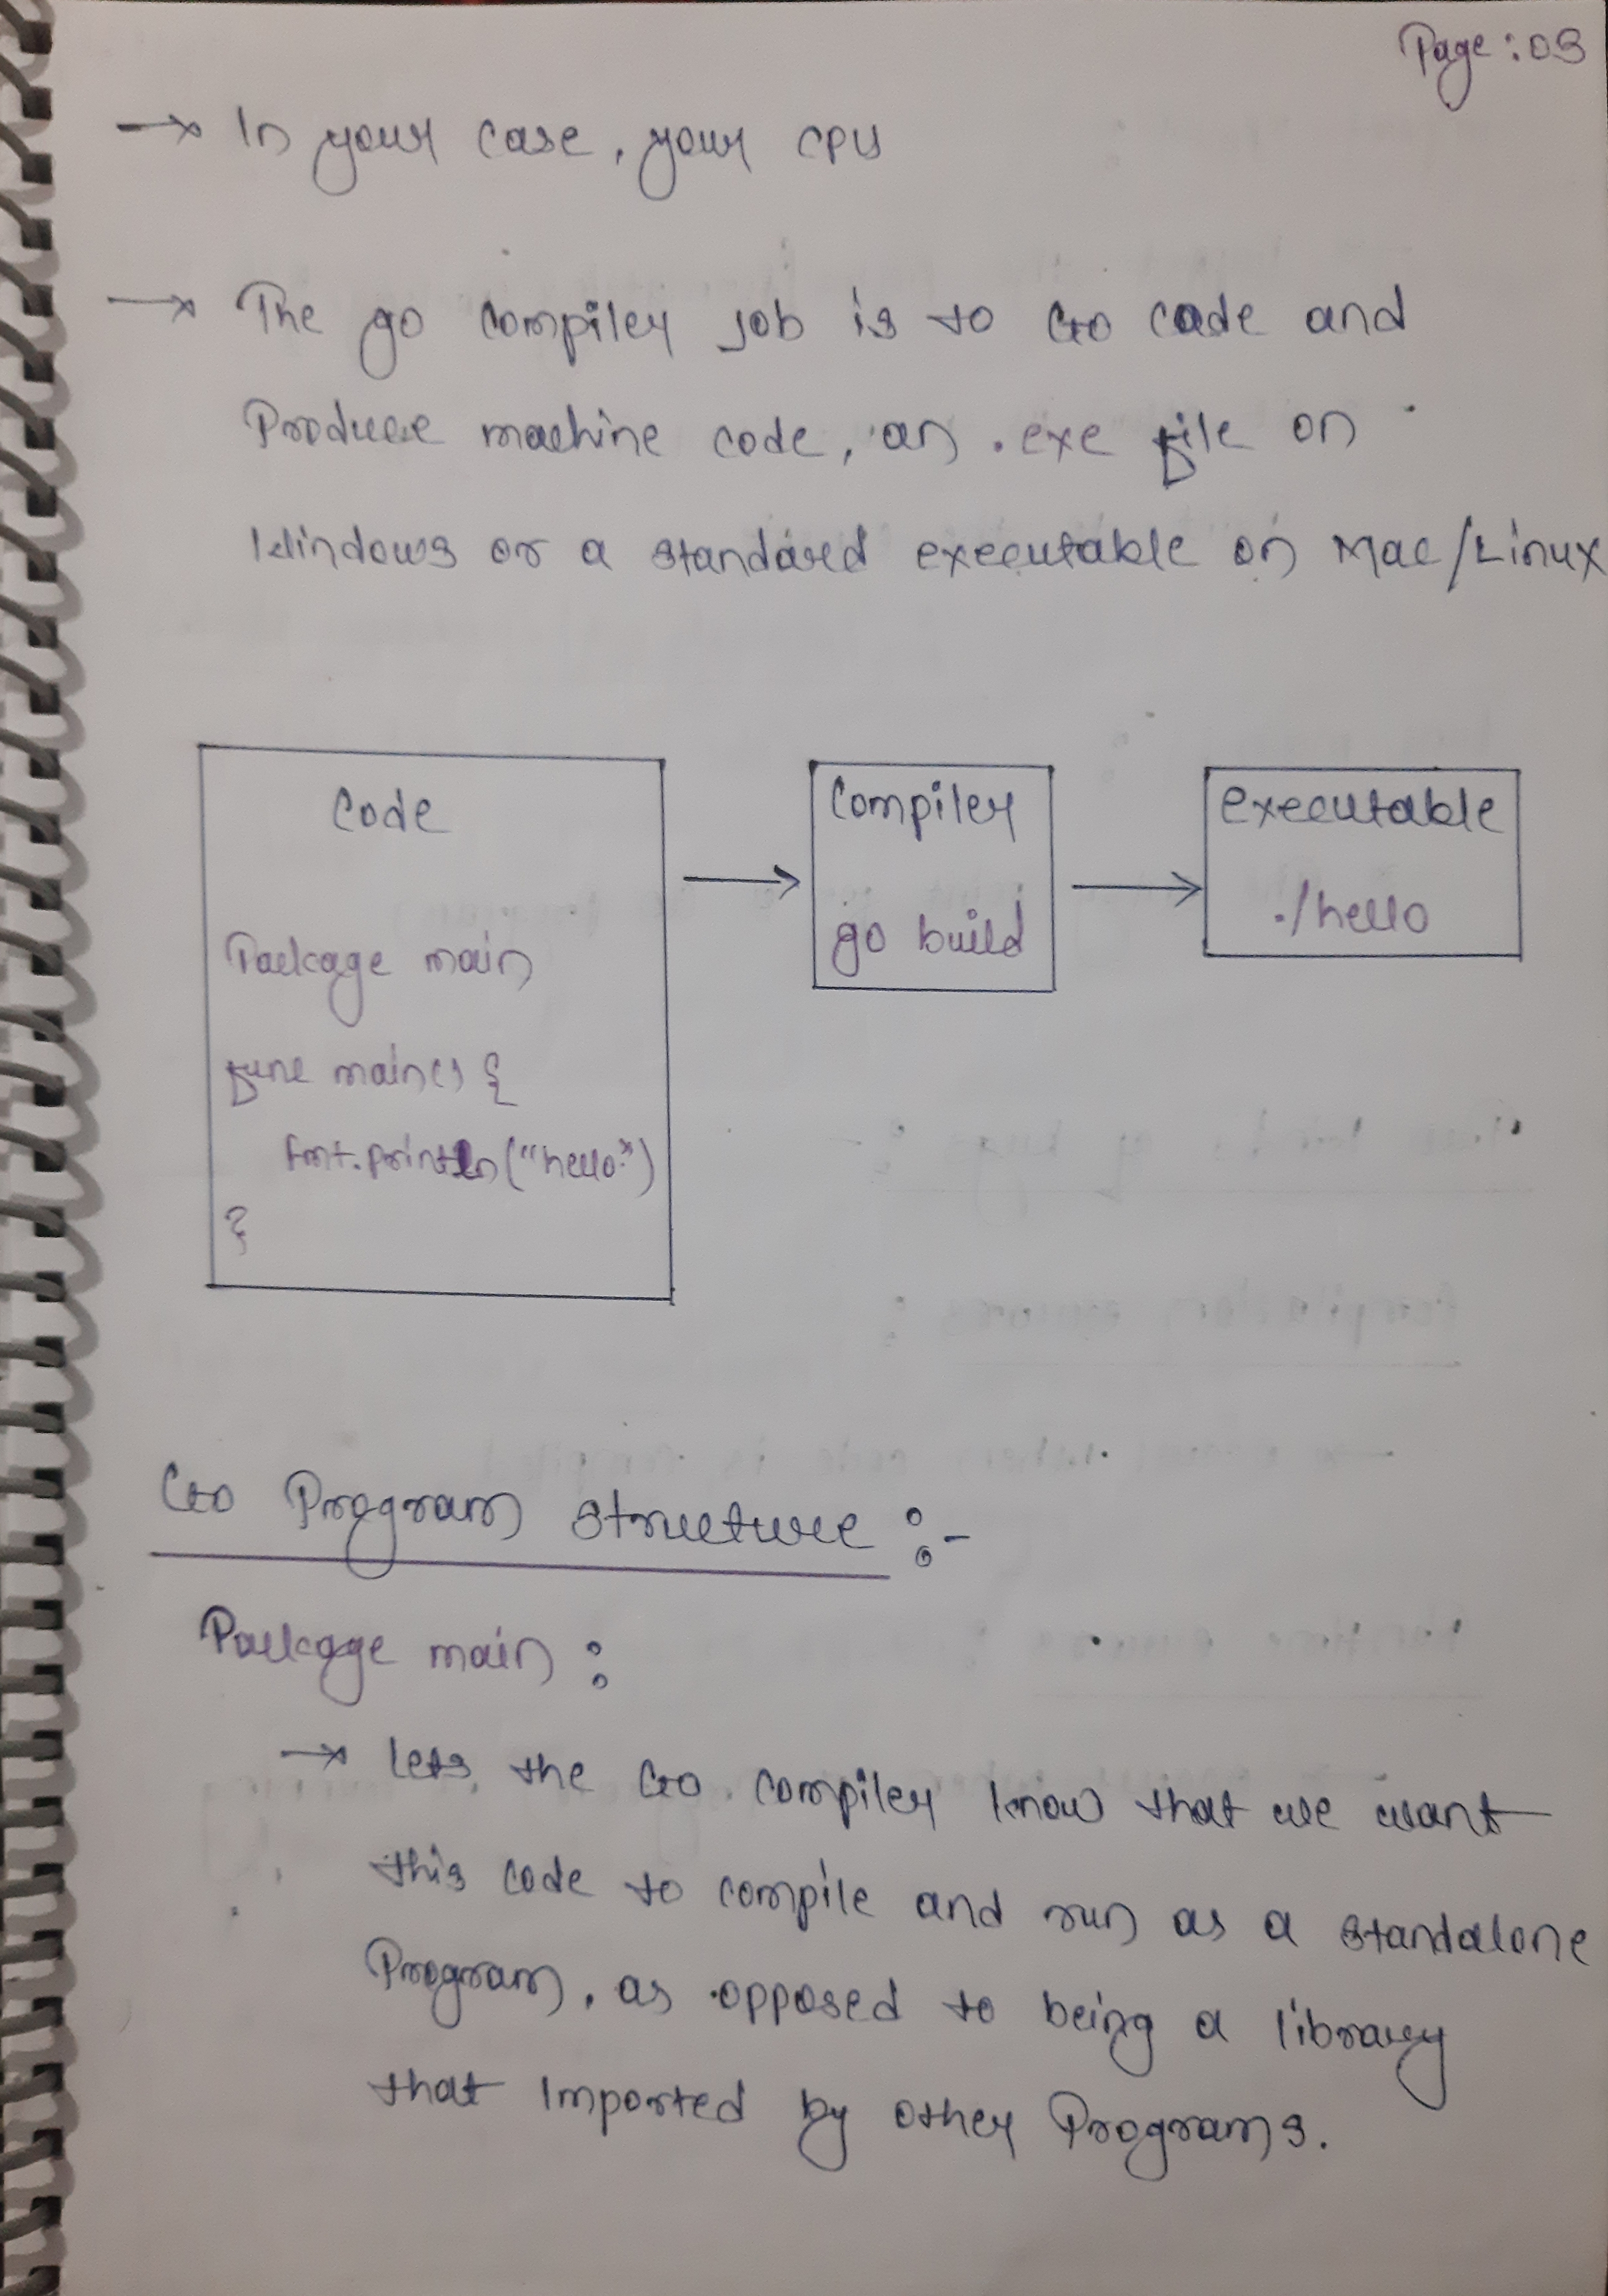 Page: 03
→ In your case, your CPU
→ The go compiler job is to Go code and
Produce machine code, an .exe file on
Windows or a standard executable on Mac/Linux
Code
Package main
func main() {
fmt.println("hello")
}
Compiler
go build
executable
./hello
Go Program structure :-
Package main :
→ lets, the Go compiler know that we want
this code to compile and run as a standalone
Program, as opposed to being a library
that imported by other Programs.